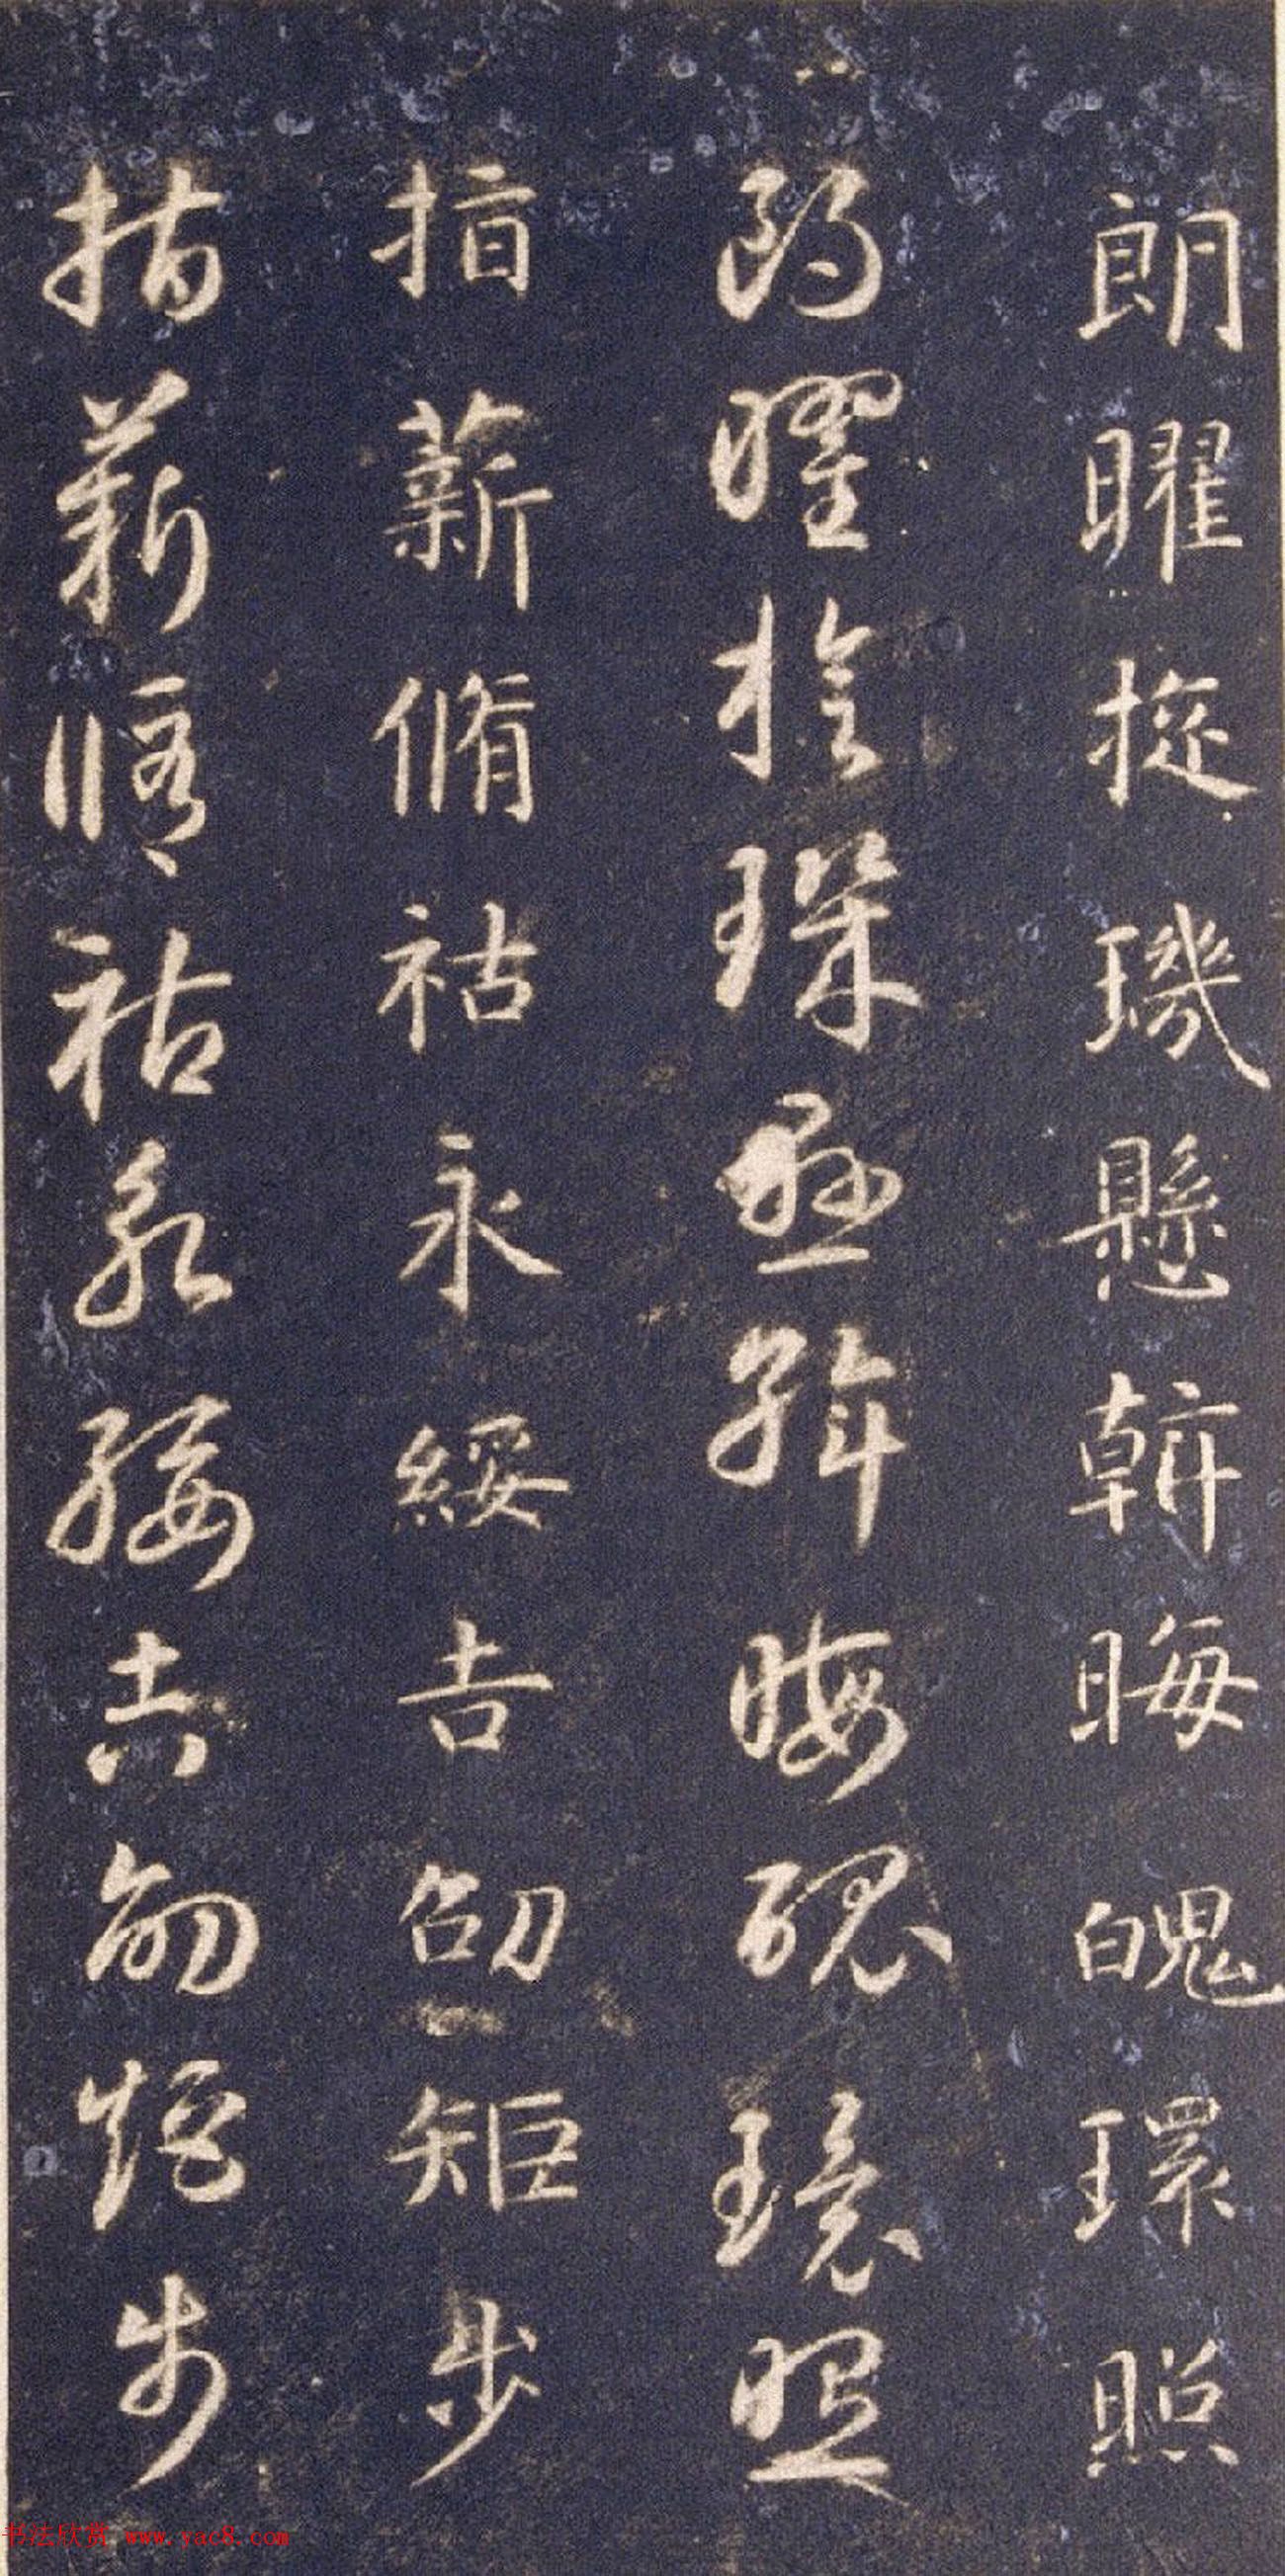 朗曜㧐璣懸斡晦魄環照
朗曜㧐璣懸斡晦魄環照
指薪脩祜永綏吉劭矩步
指薪脩祜永綏吉劭矩步
书法欣赏 www.yac8.com